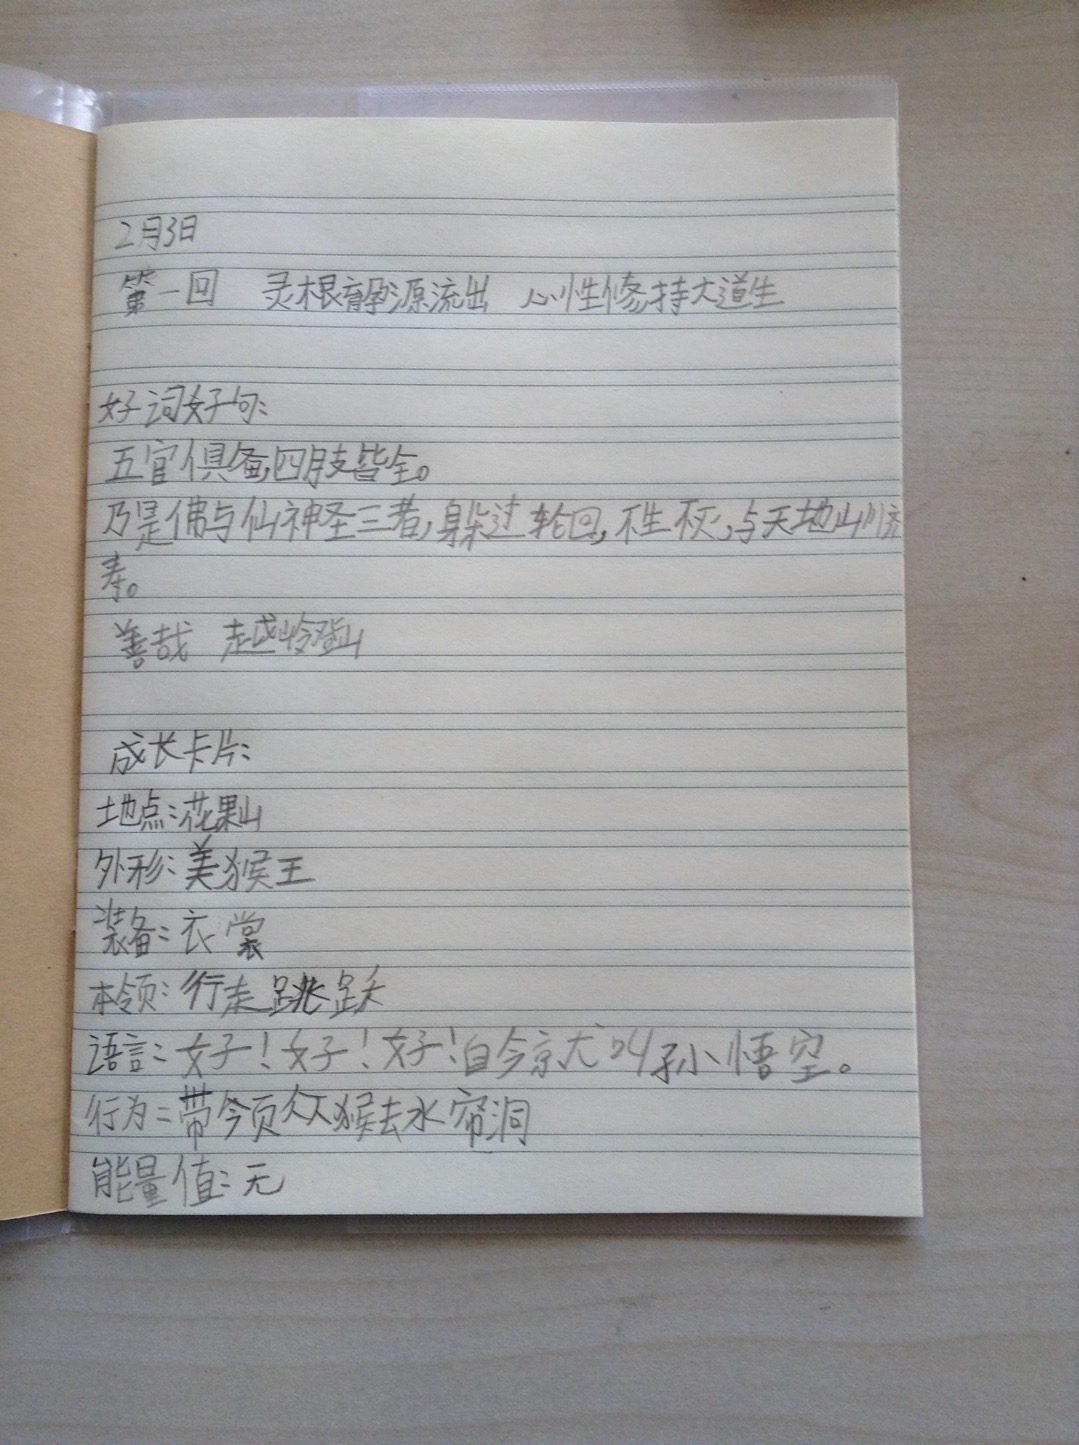 2月3日
第一回 灵根育孕源流出 心性修持大道生
好词好句:
五官俱备,四肢皆全。
乃是佛与仙神圣三者,躲过轮回,不生不灭,与天地山川齐
寿。
善哉 越岭登山
成长卡片:
地点:花果山
外形:美猴王
装备:衣裳
本领:行走跳跃
语言:好!好!好!自今京尤叫孙悟空。
行为:带领众猴去水帘洞
能量值:无